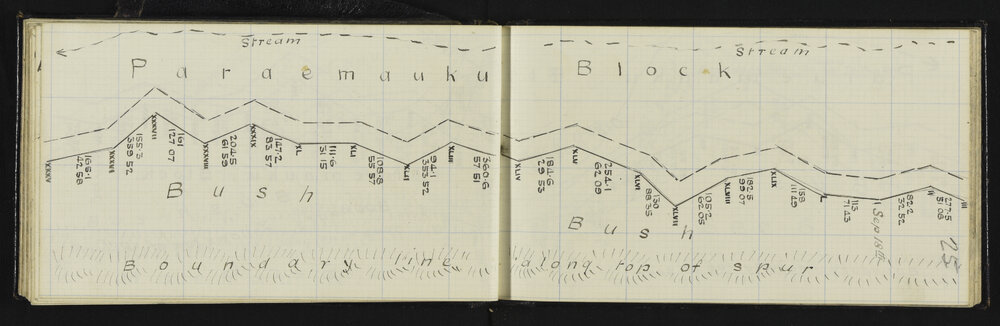 Stream Stream
Paraemauku Block
XXXV
166.1
42 58
XXXVI
155.3
359 52
XXXVII
161
127 07
XXXVIII
204.5
61 58
XXXIX
147.2
83 57
XL
111.6
31 15
XLI
108.8
55 57
XLII
94.1
353 52
XLIII
360.6
57 51
XLIV
184.6
29 53
XLV
254.1
62 09
XLVI
130
88 35
XLVII
105.2
62 05
XLVIII
182.5
99 07
XLIX
158
111 49
L
113
71 43
I
82.2
32 52
II
277.5
51 08
III
Sep 18th
25
Bush Bush
Boundary line along top of spur